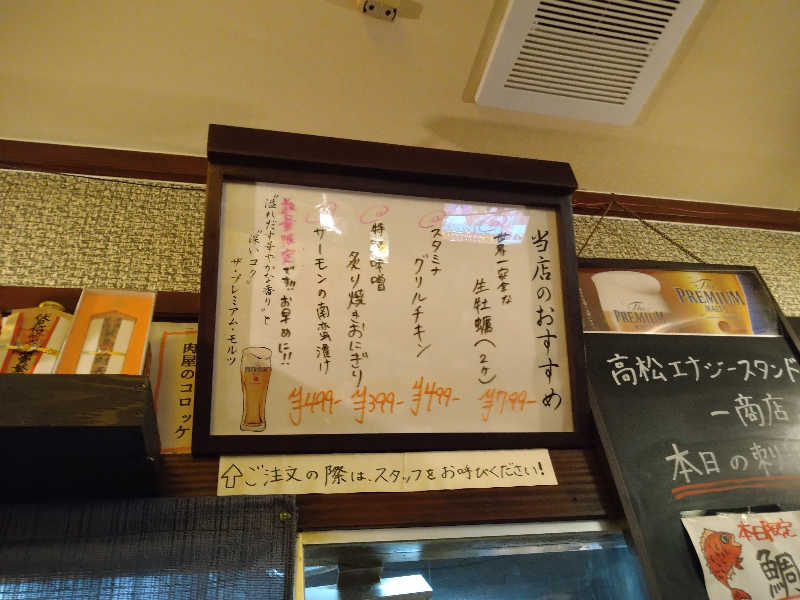 当店のおすすめ
世界一安全な
生牡蠣(2ヶ)
¥799-
スタミナ
グリルチキン
¥499-
特製味噌
炙り焼きおにぎり
¥399-
サーモンの南蛮漬け
¥499-
数量限定です!!お早めに!!
"溢れだす華やかな香り"と
"深いコク"
ザ・プレミアム・モルツ
↑ご注文の際は、スタッフをお呼びください!
肉屋のコロッケ
The
PREMIUM
MALT'S
The
PREMIUM
高松エナジースタンド
一商店
本日の刺
本日限定
鯛